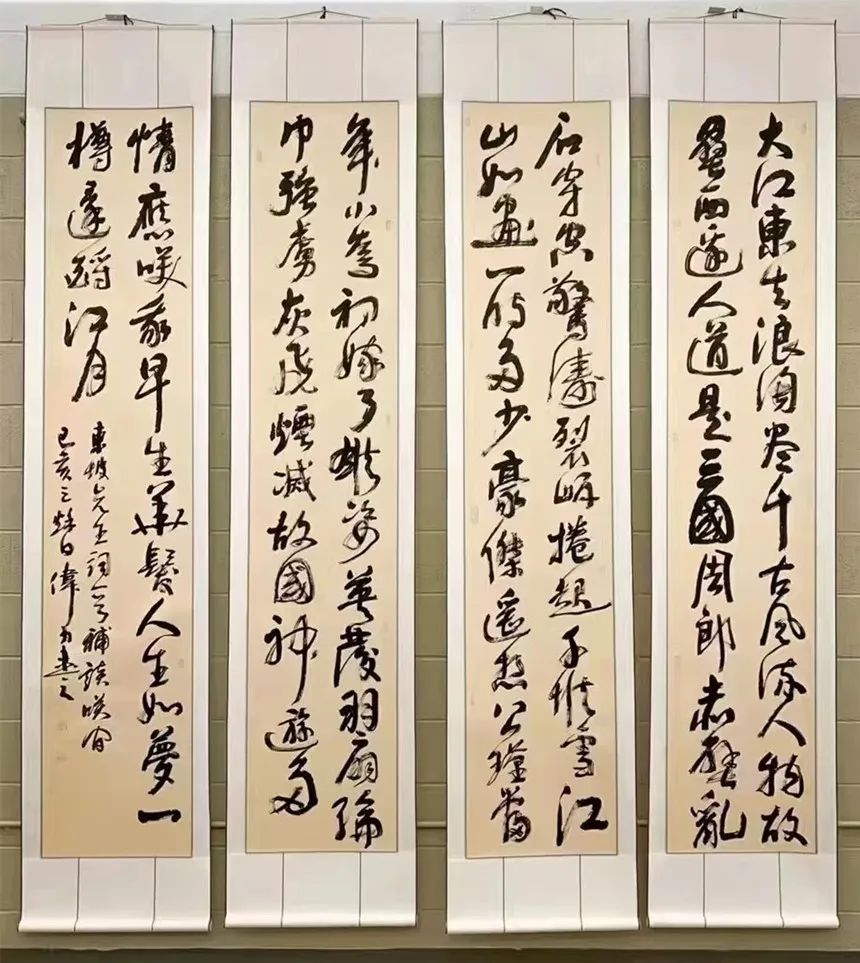 大江東去浪淘盡千古風流人物故
壘西邊人道是三國周郎赤壁亂
石穿空驚濤裂岸捲起千堆雪江
山如畫一時多少豪傑遙想公瑾當
年小喬初嫁了雄姿英發羽扇綸
巾強虜灰飛煙滅故國神遊多
情應笑我早生華髮人生如夢一
樽還酹江月
東坡先生詞補談笑間
己亥之秋日偉書之